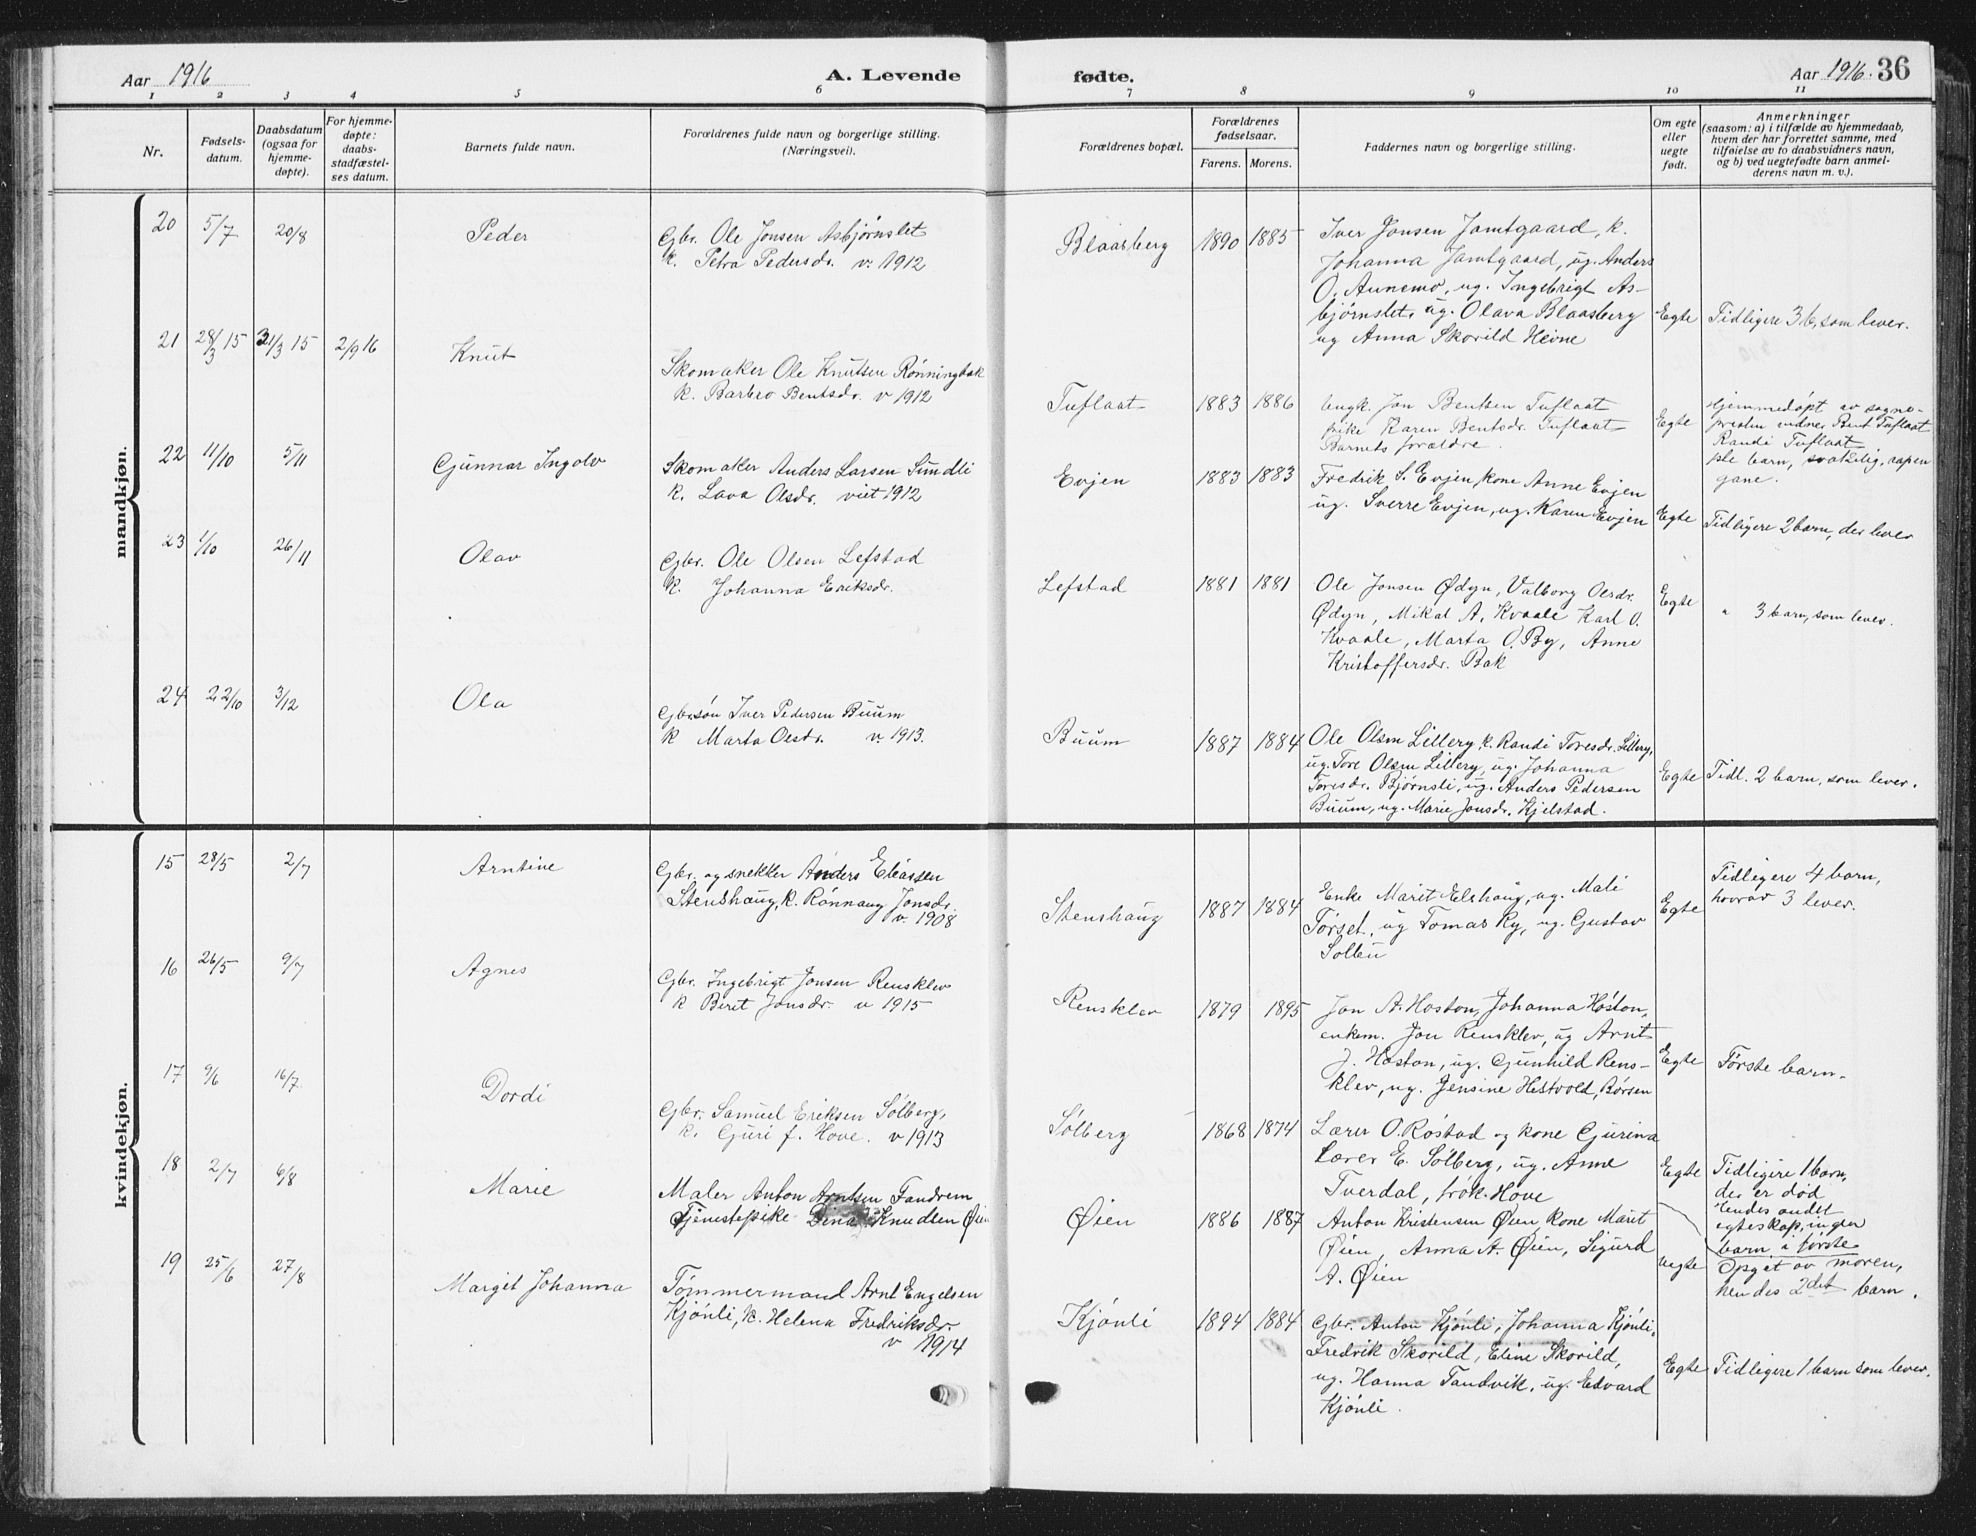 Aar 1916
A. Levende
fødte.
Aar 1916.
36
1 2 3 4 5 6 7 8 9 10 11
Nr.
Fødsels-
datum.
Daabsdatum
(ogsaa for
hjemme-
døpte).
For hjemme-
døpte:
daabs-
stadfæstel-
ses datum.
Barnets fulde navn.
Forældrenes fulde navn og borgerlige stilling.
(Næringsvei).
Forældrenes bopæl.
Forældrenes
fødselsaar.
Farens. Morens.
Faddernes navn og borgerlige stilling.
Om egte
eller
uegte
født.
Anmerkninger
(saasom: a) i tilfælde av hjemmedaab,
hvem der har forrettet samme, med
tilføielse av to daabsvidners navn,
og b) ved uegtefødte barn anmel-
derens navn m. v.).
mandkjøn.
20 5/7 20/8 Peder
Gbr. Ole Jonsen Asbjørnslet
k. Petra Pedersdr. v. 1912
Blaasberg 1890 1885
Iver Jonsen Jamtgaard, k.
Johanna Jamtgaard, ug. Anders
O. Aunemo, ug. Ingebrigt As-
bjørnslet, ug. Olava Blaasberg
ug Anna Skorild Hevne
Egte
Tidligere 3 b, som lever.
21 28/3 15 31/3 15 2/9 16 Knut
Skomaker Ole Knutsen Rønningbak
k. Barbro Bentsdr. v 1912
Tuflaat 1883 1886
ungk. Jon Bentsen Tuflaat
pike Karen Bentsdr. Tuflaat
Barnets forældre.
Egte
Hjemmedøpt av sogne-
presten vidner Bent Tuflaat
Randi Tuflaat
gane.
22 11/10 5/11 Gunnar Ingolv
Skomaker Anders Larsen Sundli
k. Lava Olsdr. viet 1912
Evjen 1883 1883
Fredrik S. Evjen, kone Anne Evjen
ug. Sverre Evjen, ug. Karen Evjen
Egte
Tidligere 2 barn, der lever
23 1/10 26/11 Olav
Gbr. Ole Olsen Lefstad
k. Johanna Eriksdr.
Lefstad 1881 1881
Ole Jonsen Ødyn, Valborg Olsdr.
Ødyn, Mikal A. Kvaale Karl O.
Kvaale, Marta O. By, Anne
Kristoffersdr. Bak
Egte
" 3 barn, som lever.
24 22/10 3/12 Ola
Gbr.søn Iver Pedersen Buum
k Marta Olsdr. v. 1913.
Buum 1887 1884
Ole Olsen Lillery k. Randi Toresdr. Lillery,
ug. Tore Olsen Lillery, ug. Johanna
Toresdr. Bjørnsli, ug. Anders Pedersen
Buum, ug. Marie Jonsdr. Kjelstad.
Egte
Tidl. 2 barn, som lever.
kvindekjøn.
15 28/5 2/7 Arntine
Gbr. og snekker Anders Eliassen
Stenshaug, k. Rønnaug Jonsdr.
v. 1908
Stenshaug 1887 1884
Enke Marit Elshaug, ug. Mali
Tørset, ug Tomas Ry, ug. Gustav
Solbu
Egte
Tidligere 4 barn,
hvorav 3 lever.
16 26/5 9/7 Agnes
Gbr. Ingebrigt Jonsen Rensklev
k Beret Jonsdr. v 1915
Rensklev 1879 1895
Jon A. Hoston, Johanna Hoston,
enkem. Jon Rensklev, ug Arnt
J. Hoston, ug. Gunhild Rens-
klev, ug. Jensine Hestvold, Børsen
Egte
Første barn.
17 9/6 16/7 Dordi
Gbr. Samuel Eriksen Sølberg,
k. Guri f. Hove. v 1913
Sølberg 1868 1874
Lærer O. Røstad og kone Gurina
Lærer E. Sølberg, ug. Anne
Tverdal, frøk. Hove
Egte
Tidligere 1 barn,
der er død
egteskap, ingen
barn i første
18 2/7 6/8 Marie
Maler Anton Arntsen Fandrem
Tjenestepike Dina Knudsen Øien
Øien 1886 1887
Anton Kristensen Øien kone Marit
Øien, Anna A. Øien, Sigurd
A. Øien
uegte
Opget av moren,
hendes 2det barn.
19 25/6 27/8 Margit Johanna
Tømmermand Arnt Engelsen
Kjønli, k. Helena Fredriksdr.
v 1914
Kjønli 1894 1884
Gbr. Anton Kjønli, Johanna Kjønli,
Fredrik Skorild, Eline Skorild,
ug. Hanna Tandvik, ug. Edvard
Kjønli.
Egte
Tidligere 1 barn som lever.